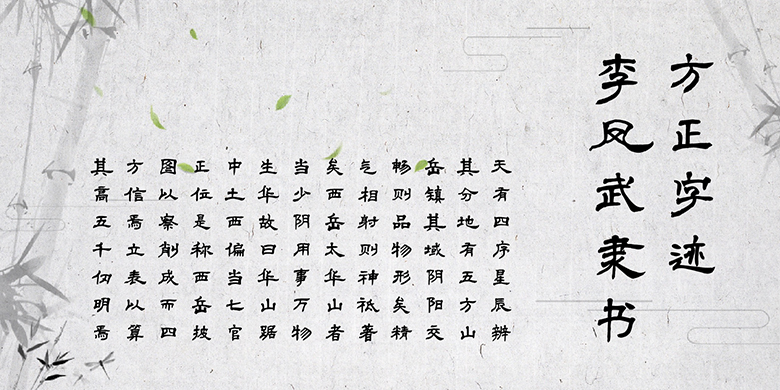 方正字迹
李凤武隶书
天有四序星辰辨
其分地有五方山
岳镇其域阴阳交
畅则品物形矣精
气相射则神祇著
矣西岳太华山者
当少阴用事万物
生华故曰华山踞
中土西偏当七官
正位是称西岳披
图以察削成而四
方信焉立表以算
其高五千仞明焉